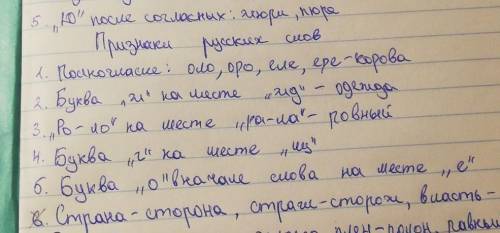 5. „Ю" после согласных: жюри, пюре
Признаки русских слов
1. Полногласие: оло, оро, еле, ере-корова
2. Буква „ж" на месте „жд" - одежда
3. „Ро-ло" на месте „ра-ла" - ровный
4. Буква „ч" на месте „щ"
5. Буква „о" вначале слова на месте „е"
6. Страна-сторона, страж-сторож, власть-
плен-полон, равный